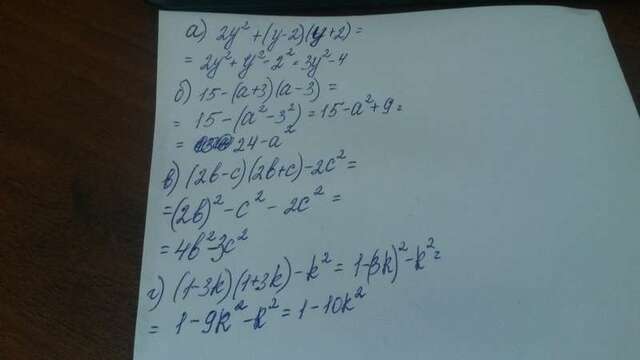 а) 2y² + (y-2)(y+2) =
= 2y² + y² - 2² = 3y² - 4
б) 15 - (a+3)(a-3) =
= 15 - (a² - 3²) = 15 - a² + 9 =
= 24 - a²
в) (2b-c)(2b+c) - 2c² =
= (2b)² - c² - 2c² =
= 4b² - 3c²
г) (1-3k)(1+3k) - k² = 1-(3k)² - k² =
= 1 - 9k² - k² = 1 - 10k²